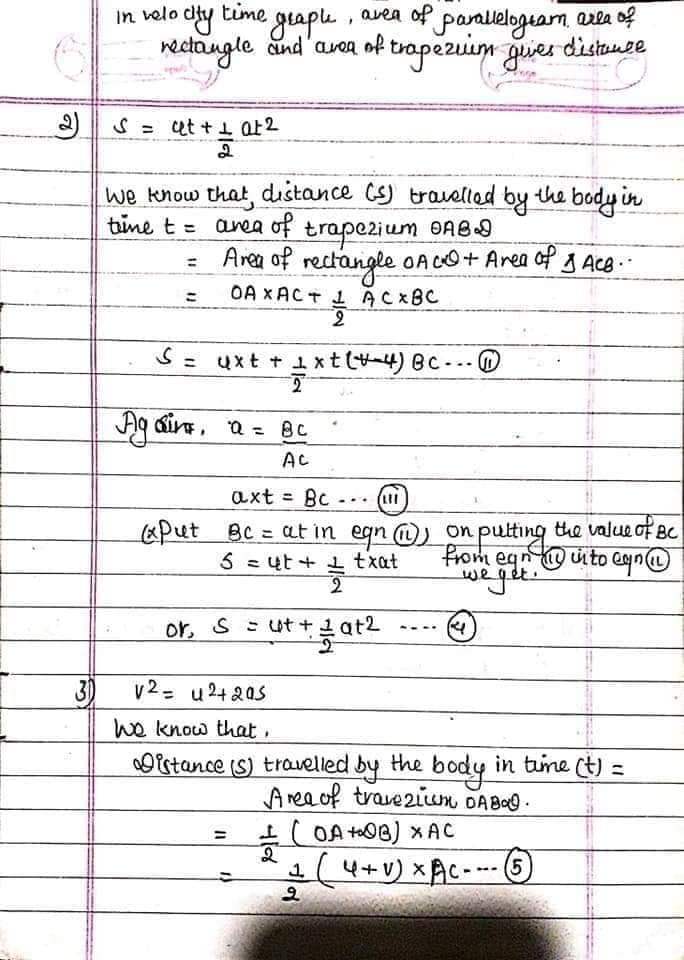 in velocity time graph, area of parallelogram, area of
rectangle and area of trapezium gives distance
2) S = ut + 1/2 at2
We know that, distance (s) travelled by the body in
time t = area of trapezium OABD
= Area of rectangle OACD + Area of Δ ACB..
= OA x AC + 1/2 AC x BC
S = u x t + 1/2 x t (v-u) BC --- (ii)
Again, a = BC/AC
a x t = BC --- (iii)
(Put BC = at in eqn (ii)) on putting the value of BC
from eqn (iii) into eqn (ii)
we get.
S = ut + 1/2 t x at
or, S = ut + 1/2 at2 ---- (4)
3) v2 = u2 + 2as
We know that,
Distance (s) travelled by the body in time (t) =
Area of travezium OABD.
= 1/2 (OA + DB) x AC
= 1/2 (u + v) x AC ---- (5)